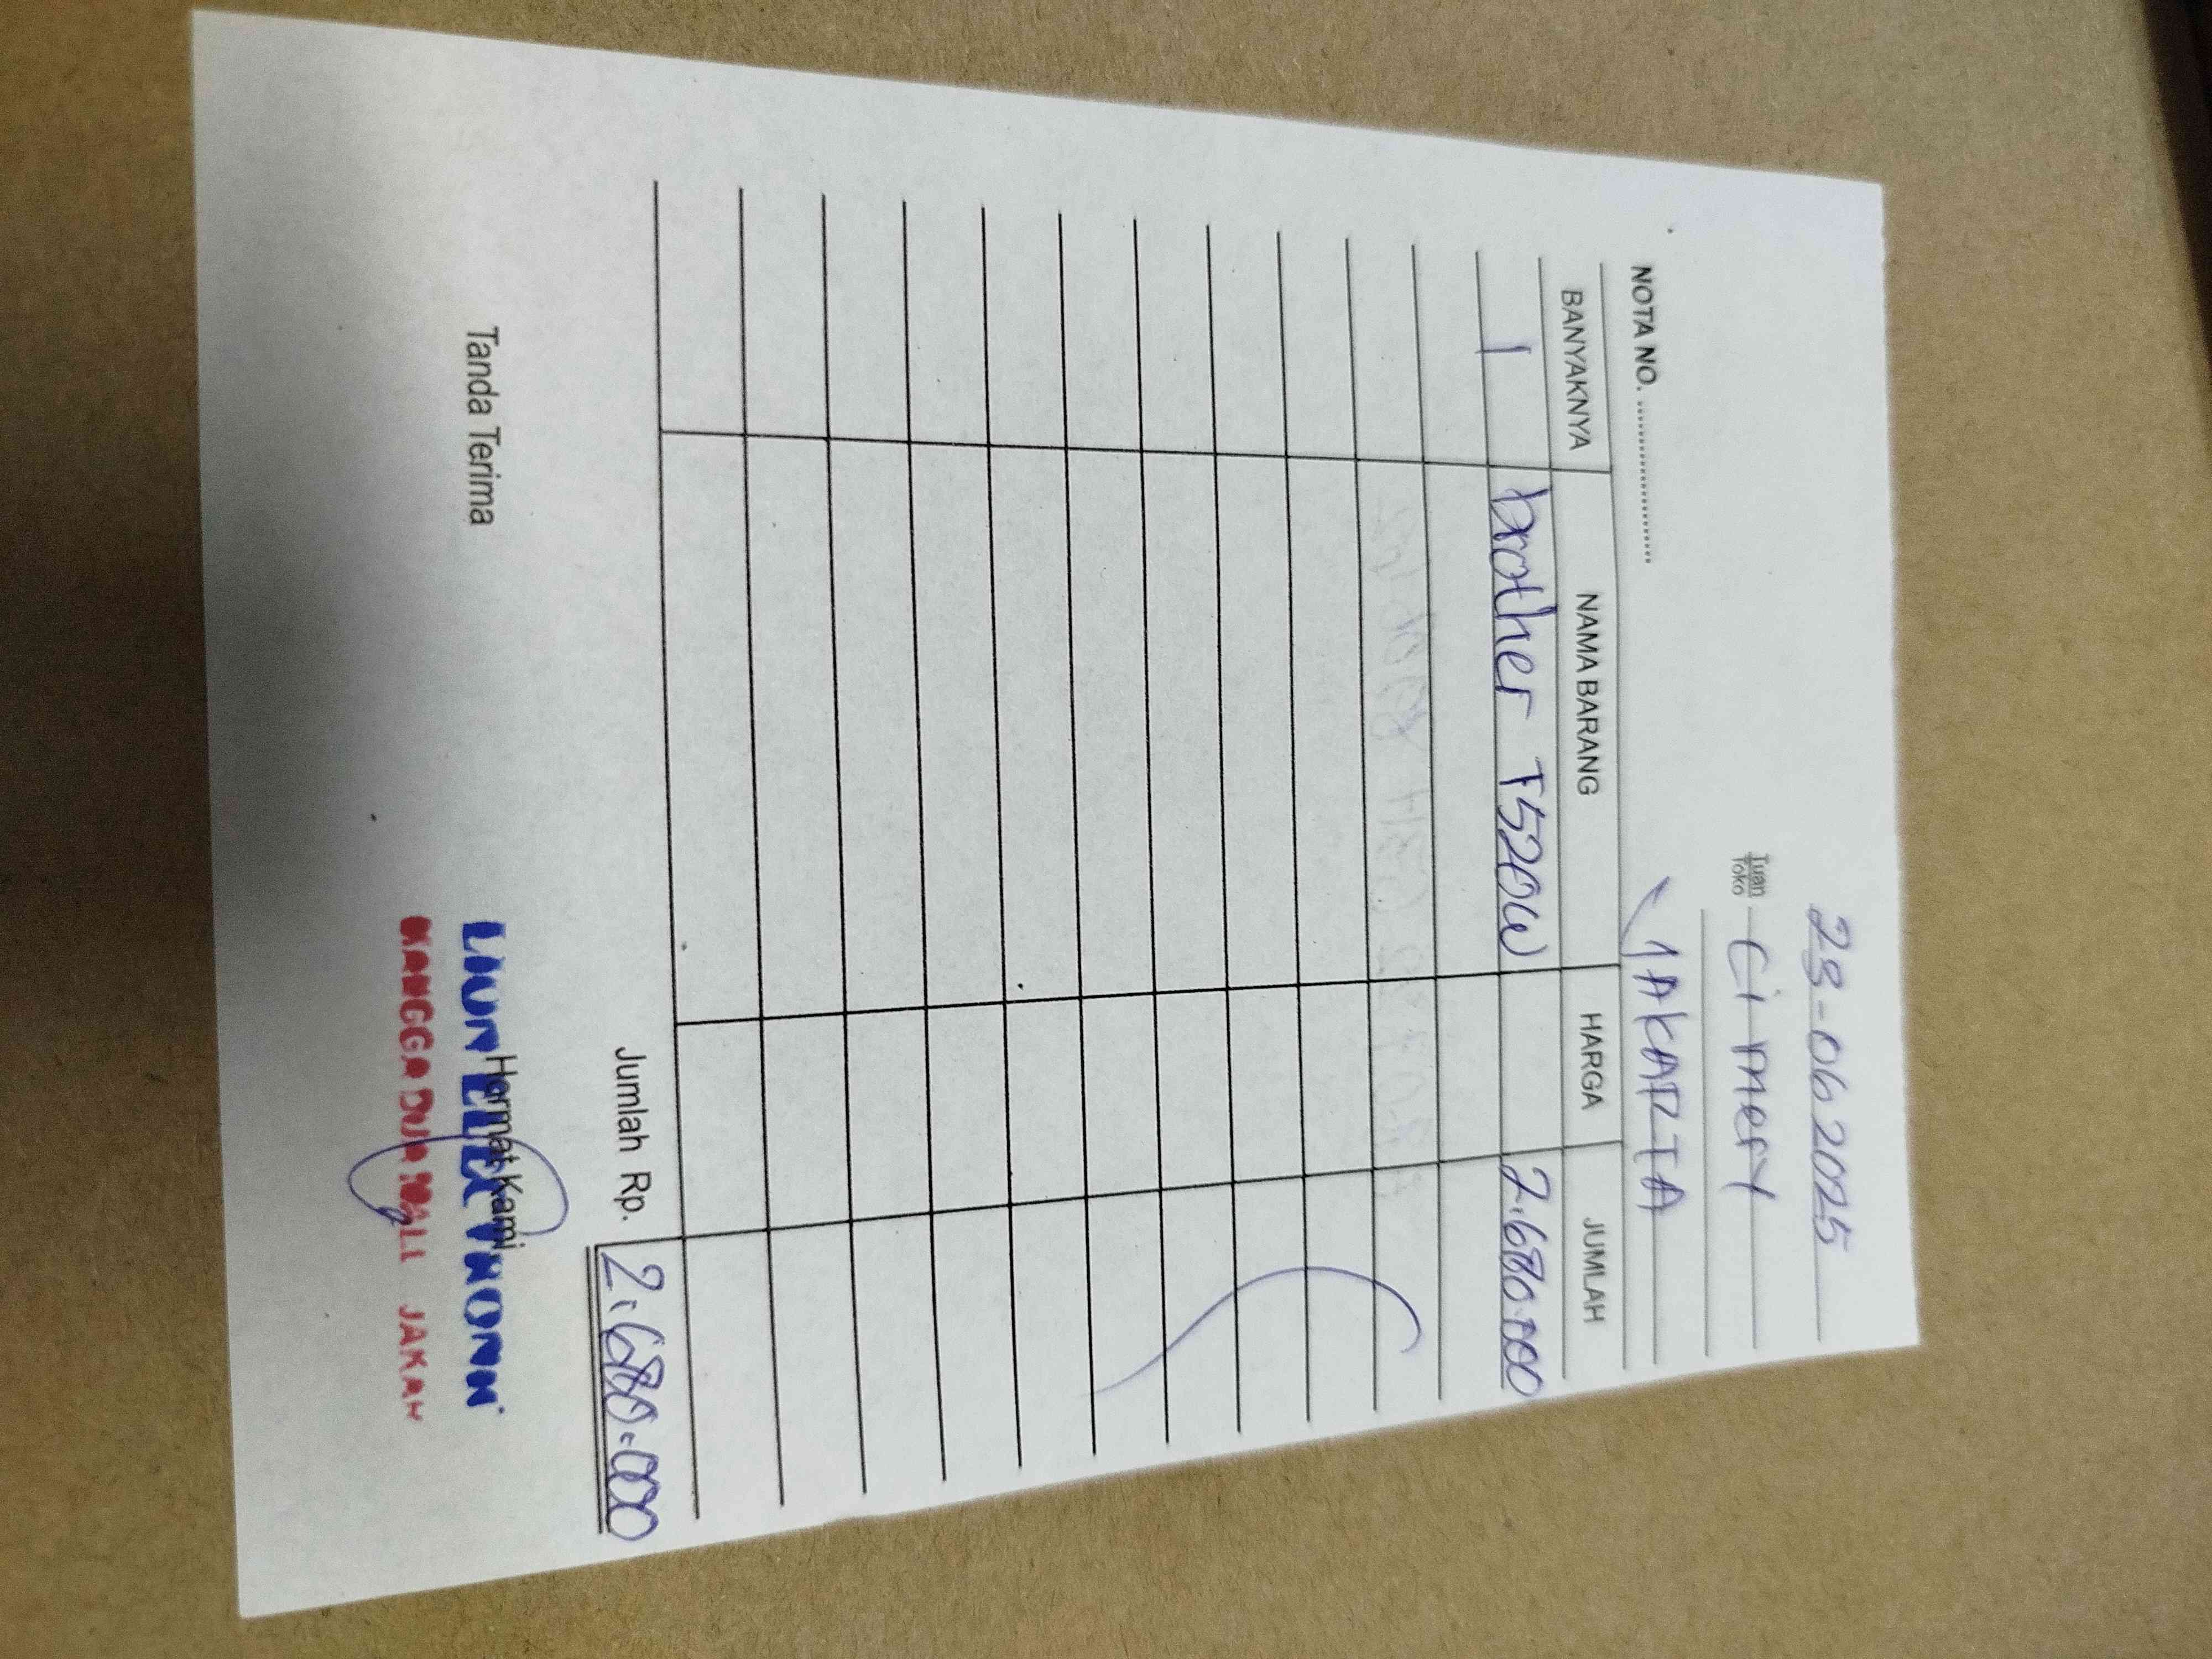 23-06 2025
Tuan
Toko
Ci Mery
JAKARTA
NOTA NO. ..............................
BANYAKNYA NAMA BARANG HARGA JUMLAH
1 brother T520W 2.680.000
Jumlah Rp. 2.680.000
Tanda Terima Hormat Kami,
MANGGA DUA MALL JAKAR